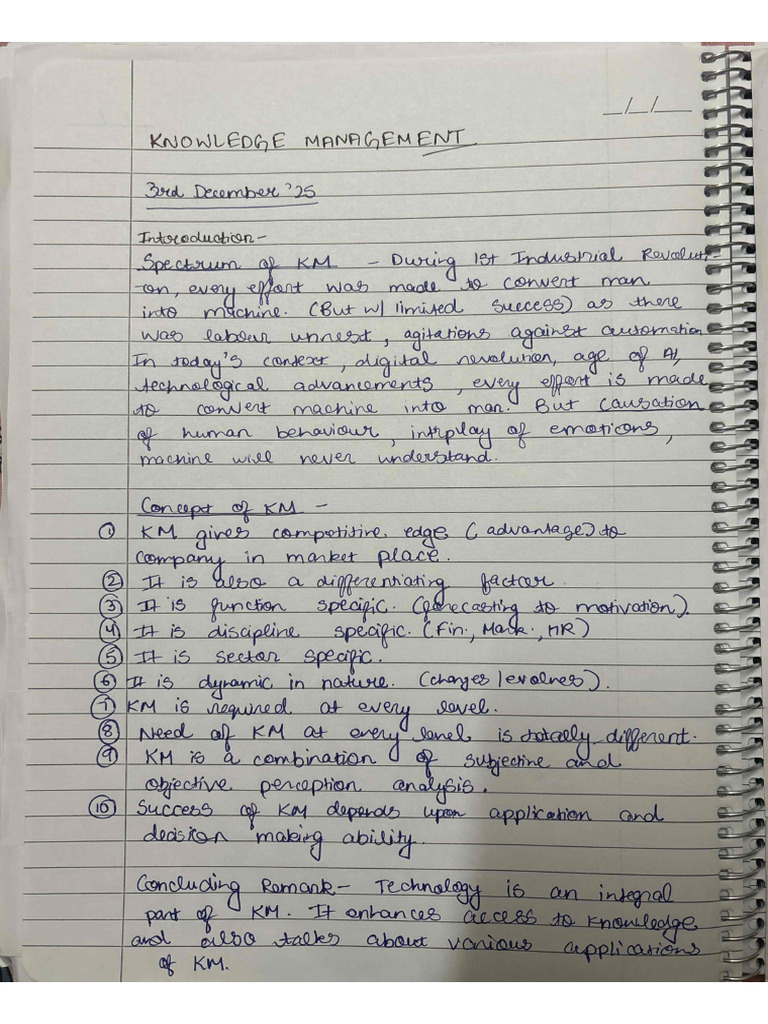 _/_/_
KNOWLEDGE MANAGEMENT
3rd December '25
Introduction -
Spectrum of KM - During 1st Industrial Revoluti-
on, every effort was made to convert man
into machine. (But w/ limited success) as there
was labour unrest, agitations against automation
In today's context, digital revolution, age of AI,
technological advancements, every effort is made
to convert machine into man. But Causation
of human behaviour, intrplay of emoticons,
machine will never understand.
Concept of KM -
① KM gives competitive edge (advantage) to
company in market place.
② It is also a differentiating factor.
③ It is function specific. (forecasting to motivation).
④ It is discipline specific. (Fin., Mark., HR)
⑤ It is sector specific.
⑥ It is dynamic in nature. (changes/evolves).
⑦ KM is required at every level.
⑧ Need of KM at every level is totally different.
⑨ KM is a combination of subjective and
objective perception analysis.
⑩ Success of KM depends upon application and
decision making ability.
Concluding Remark - Technology is an integral
part of KM. It enhances access to knowledge
and also talks about various applications
of KM.